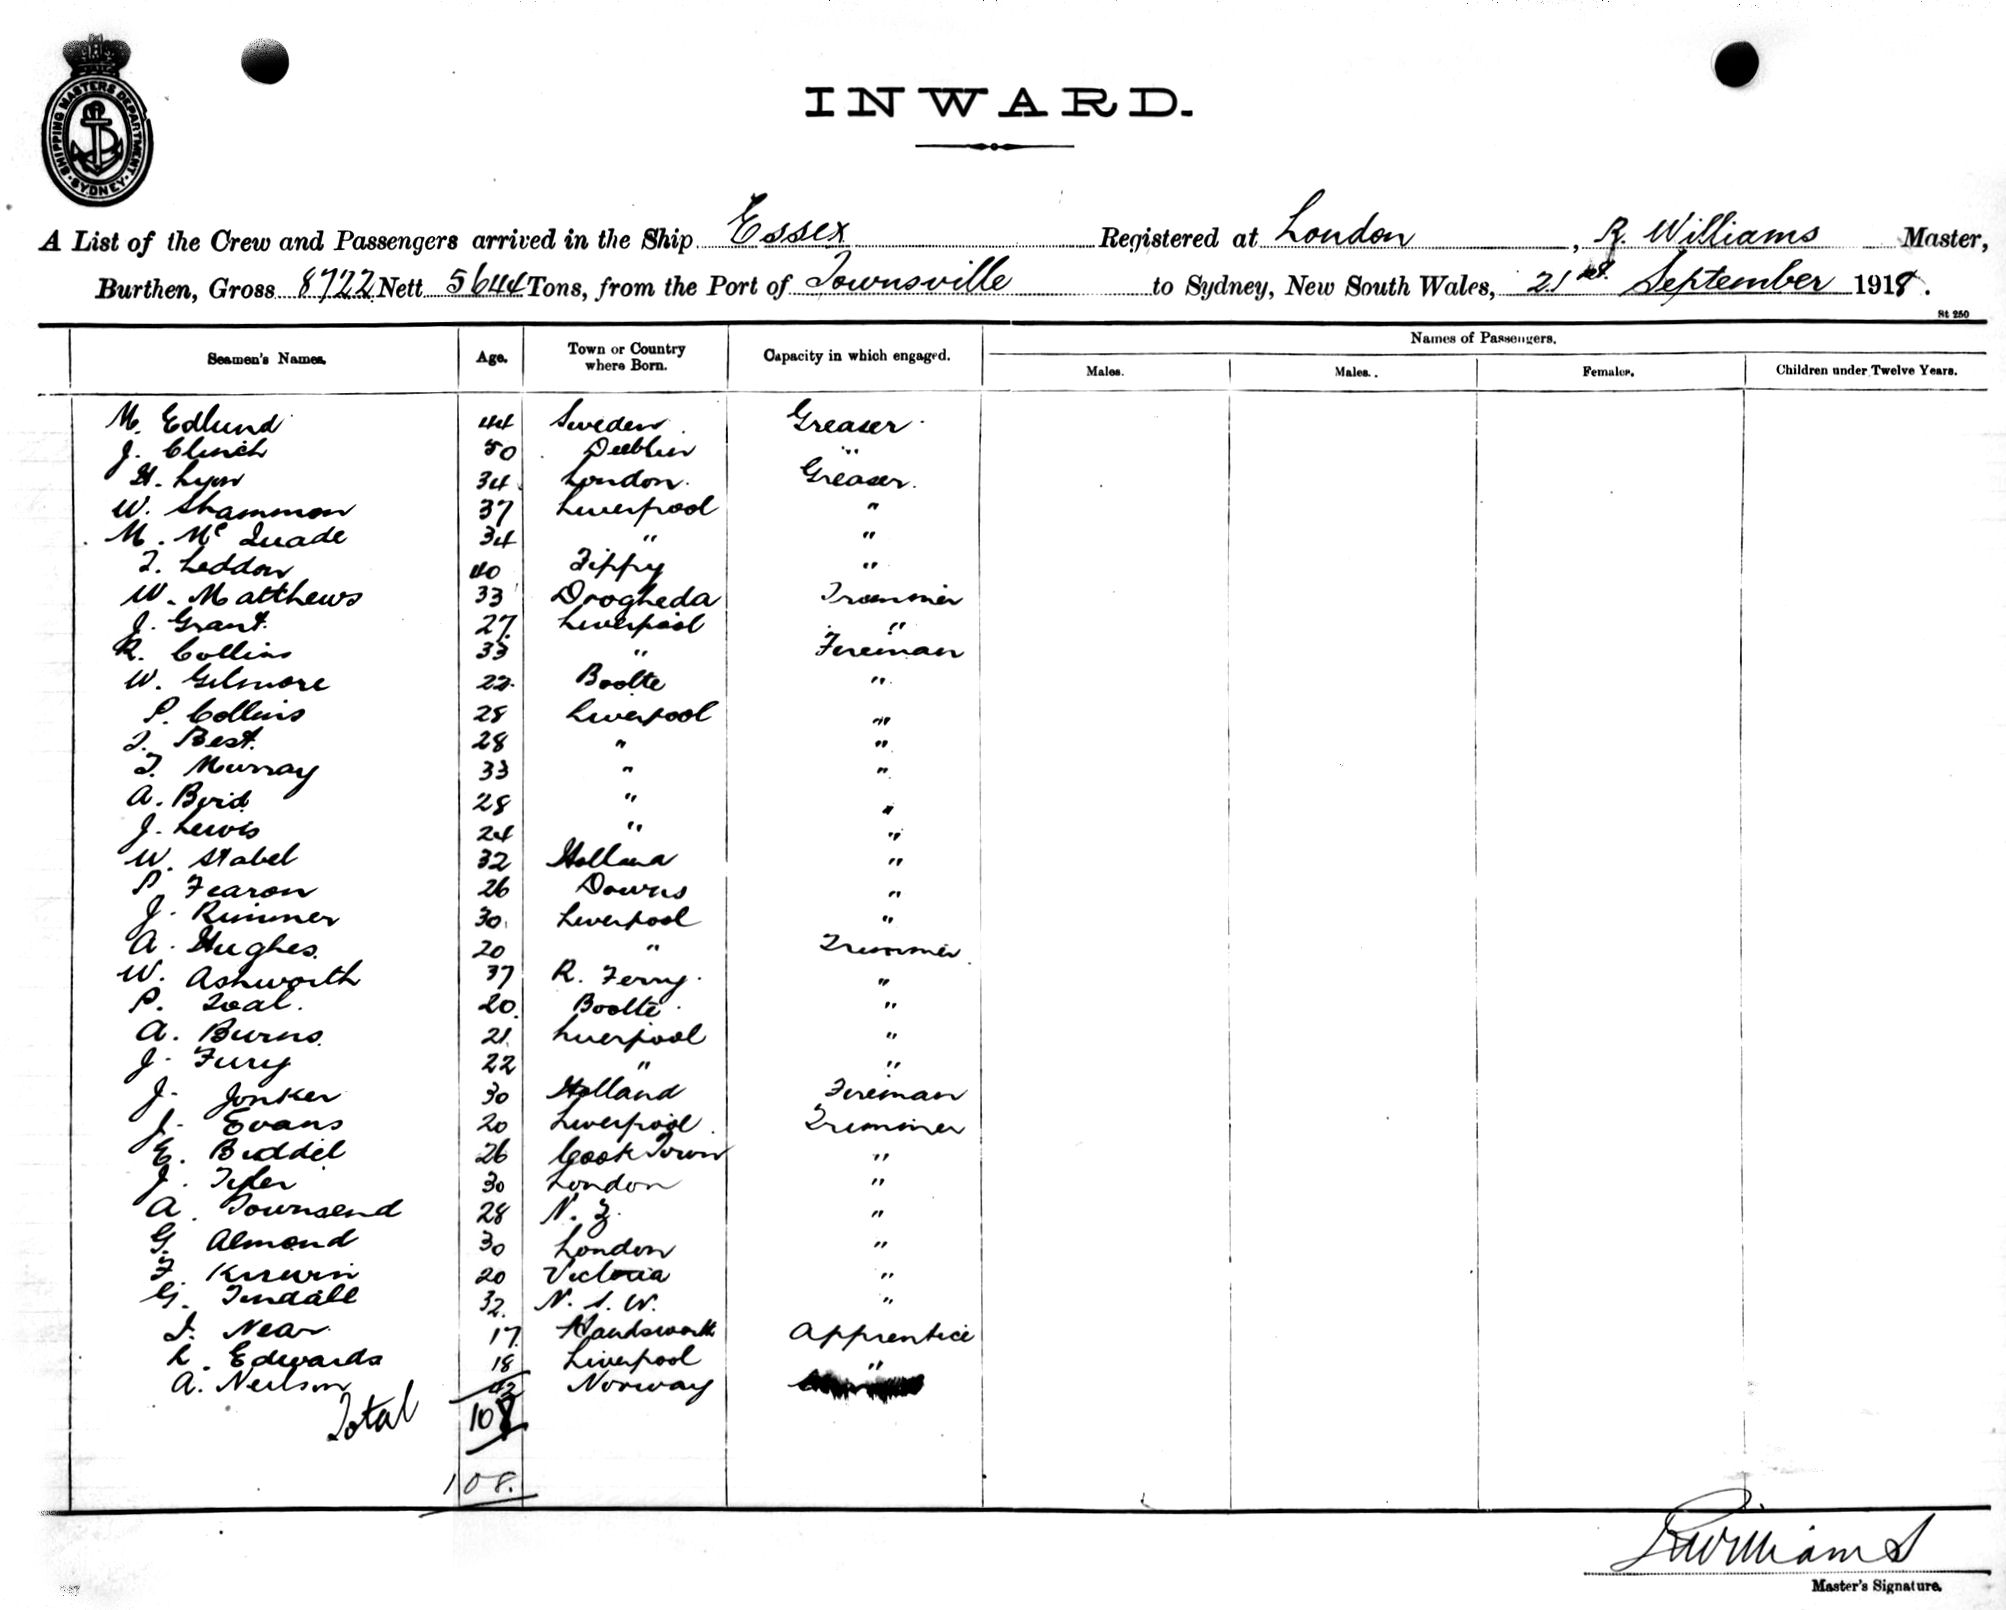 SHIPPING MASTERS DEPARTMENT. SYDNEY.
INWARD.
A List of the Crew and Passengers arrived in the Ship Essex Registered at London, R. Williams Master,
Burthen, Gross 8722 Nett 5644 Tons, from the Port of Townsville to Sydney, New South Wales, 21st September 1918.
St 250
Seamen's Names. Age. Town or Country where Born. Capacity in which engaged. Names of Passengers.
Males. Males. Females. Children under Twelve Years.
M. Edlund 44 Sweden Greaser
J. Clinch 50 Dublin "
H. Lyon 34 London Greaser
W. Shammon 37 Liverpool "
M. McQuade 34 " "
T. Leddon 40 Tippy "
W. Matthews 33 Drogheda Trimmer
J. Grant 27 Liverpool "
R. Collins 33 " Fireman
W. Gilmore 22 Bootle "
P. Collins 28 Liverpool "
T. Best 28 " "
T. Murray 33 " "
A. Boid 28 " "
J. Lewis 24 " "
W. Stabel 32 Holland "
P. Fearon 26 Downs "
J. Rimmer 30 Liverpool "
A. Hughes 20 " Trimmer
W. Ashworth 37 R. Ferry "
P. Toal 20 Bootle "
A. Burns 21 Liverpool "
J. Fury 22 " "
J. Jonker 30 Holland Fireman
J. Evans 20 Liverpool Trimmer
E. Biddel 26 Cook Town "
J. Tyler 30 London "
A. Townsend 28 N. Z. "
G. Almond 30 London "
F. Kirwin 20 Victoria "
G. Tindall 32 N. S. W. "
I. Near 17 Handsworth Apprentice
L. Edwards 18 Liverpool "
A. Neilson 42 Norway
Total 108
108.
RWilliams
Master's Signature.